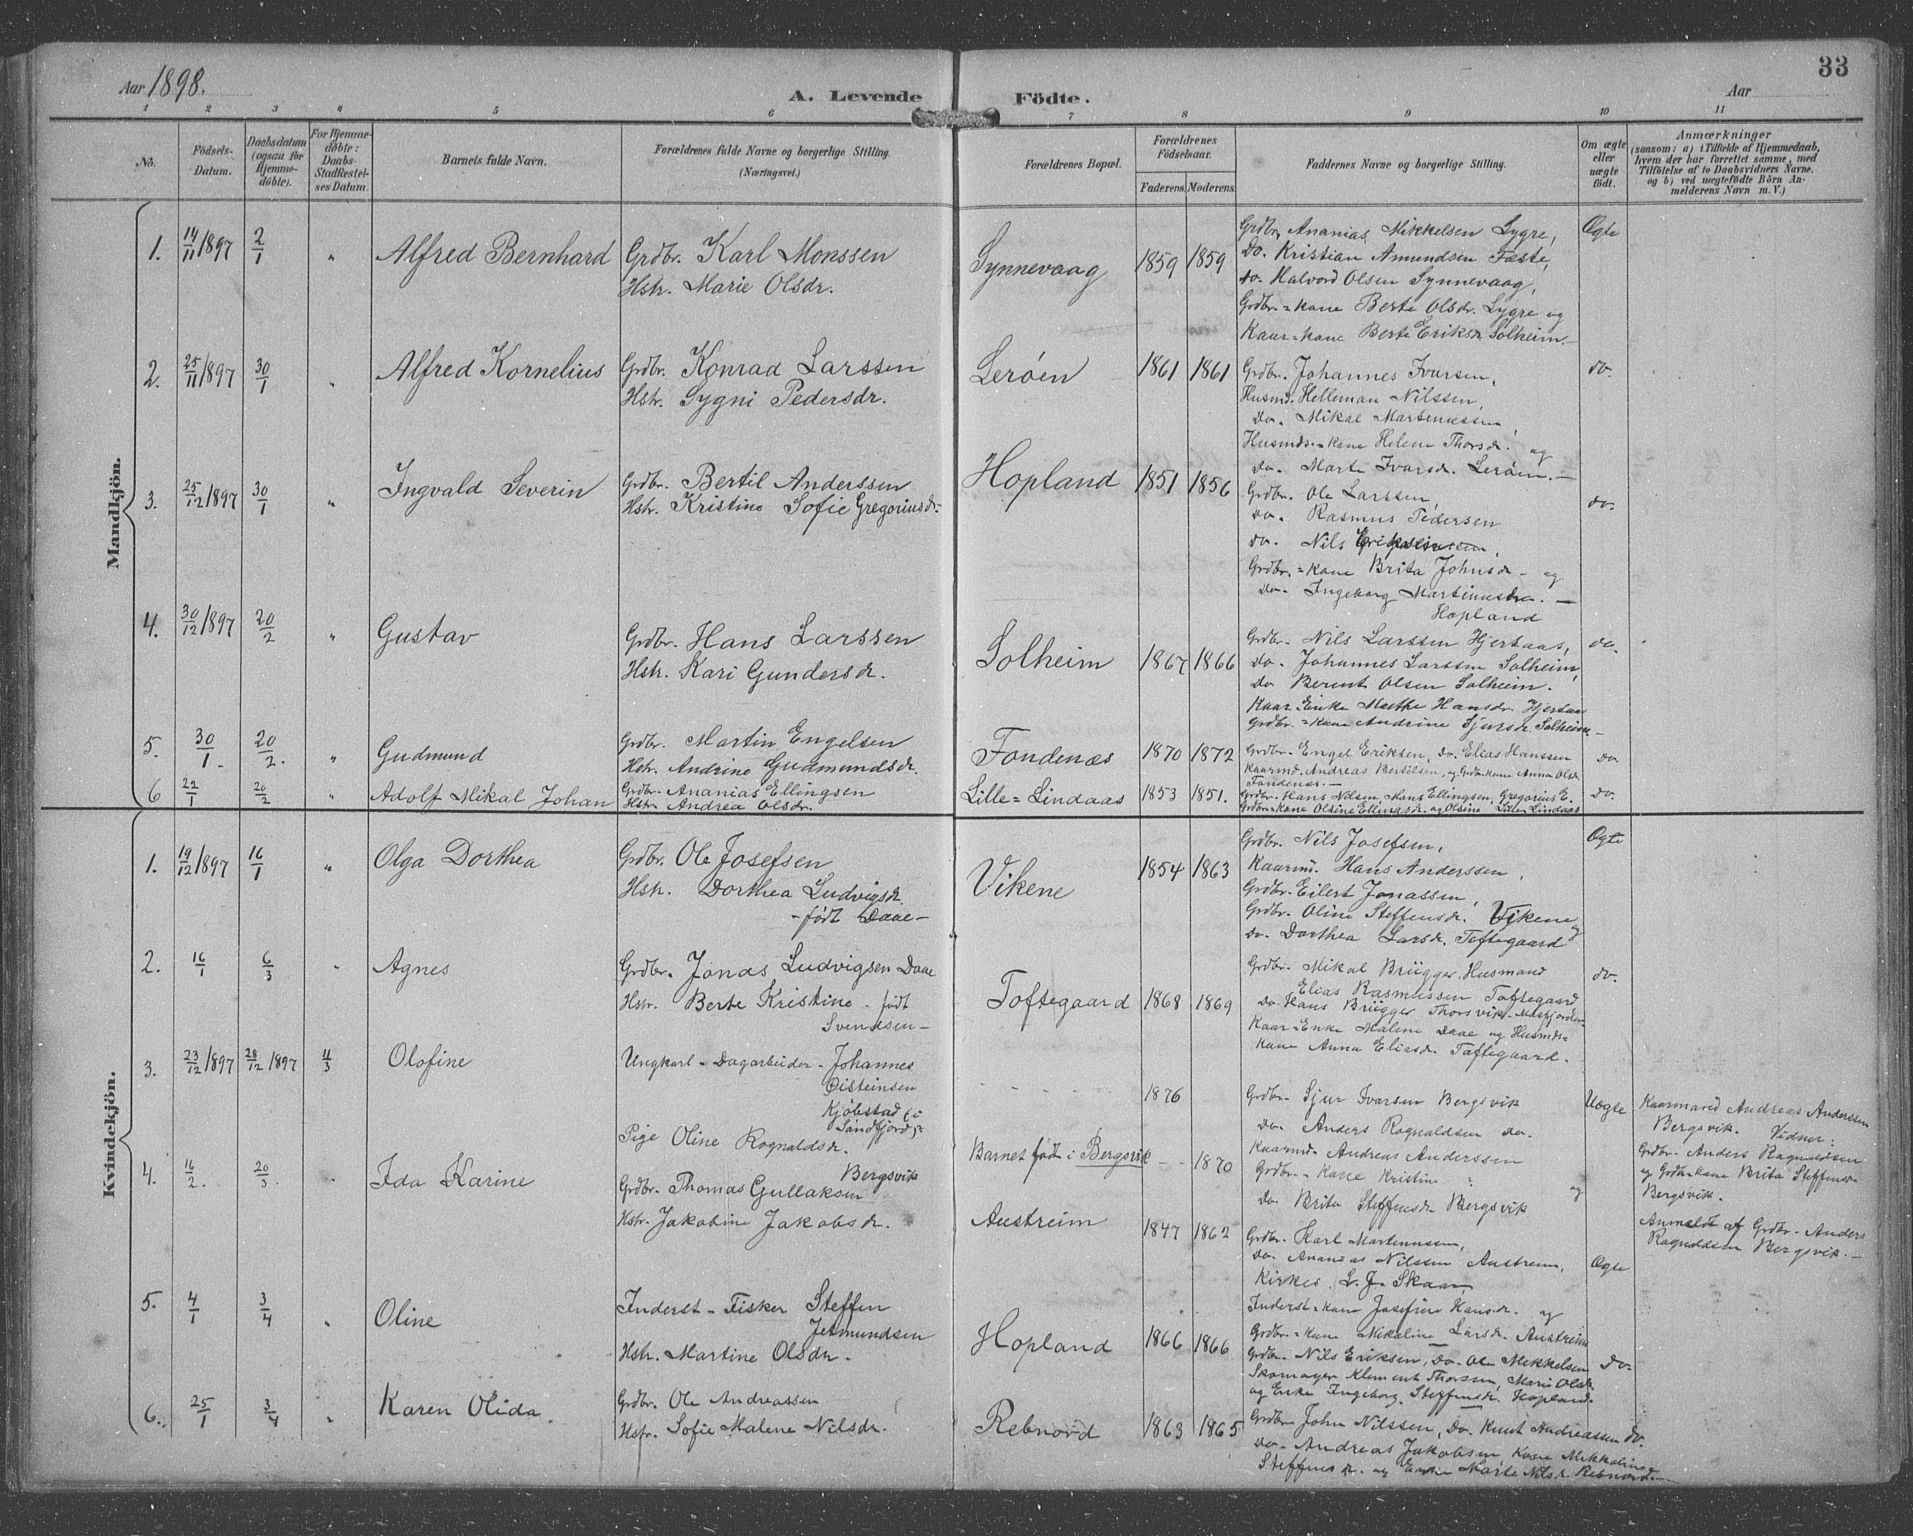 33
Aar 1898.
A. Levende Födte.
Aar
1 2 3 4 5 6 7 8 9 10 11
No.
Födsels-Datum.
Daabsdatum (ogsaa for Hjemmedöbte).
For Hjemmedöbte: Daabs-Stadfæstelses Datum.
Barnets fulde Navn.
Forældrenes fulde Navne og borgerlige Stilling. (Næringsvei.)
Forældrenes Bopæl.
Forældrenes Födselsaar.
Faderens. Moderens.
Faddernes Navne og borgerlige Stilling.
Om ægte eller uægte födt.
Anmærkninger
(saasom: a) i Tilfælde af Hjemmedaab, hvem der har forrettet samme, med Tilföielse af to Daabsvidners Navne. og b) ved uægtefödte Börn Anmelderens Navn m. V.)
Mandkjön.
1. 14/11 1897 2/1 " Alfred Bernhard
Grdbr. Karl Monssen
Hstr. Marie Olsdr.
Synnevaag 1859 1859
Grdbr. Ananias Mikkelsen Lygre,
Do. Kristian Amundsen Fæste,
do Halvord Olsen Synnevaag,
Grdbr.-kone Berte Olsdr. Lygre og
Kaar-kone Berte Eriksdr Solheim.-
Ægte
2. 25/11 1897 30/1 " Alfred Kornelius
Grdbr. Konrad Larssen
Hstr. Sygni Pedersdr.
Lerøen 1861 1861
Grdbr. Johannes Ivarsen,
Husmd. Helleman Nilssen,
do. Mikal Martenussen,
Husmds.-kone Helene Thorsdr. og
do. Marte Ivarsdr. Lerøen.-
do.
3. 25/12 1897 30/1 " Ingvald Severin
Grdbr. Bertil Anderssen
Hstr. Kristine Sofie Gregoriusdr.
Hopland 1851 1856
Grdbr. Ole Larssen,
do. Rasmus Pedersen
do. Nils
Grdbr.-kone Brita Johnsdr - og
do. Ingeborg
Hopland
do.
4. 30/12 1897 20/2 " Gustav
Grdbr. Hans Larssen
Hstr. Kari Gundersdr.
Solheim 1867 1866
Grdbr. Nils Larssen Hjertaas,
do. Johannes Larssen Solheim,
do Berent Olsen Solheim.
Kaar-Enke Marthe Hansdr. Hjertaas
Grdbr.-kone Andrine Sjursdr. Solheim.-
do.
5. 30/1. 20/2. " Gudmund
Grdbr. Martin Engelsen
Hstr. Andrine Gudmundsdr.
Fondenæs 1870 1872
Grdbr. Engel Eriksen, do. Elias Hanssen
Kaarmd. Andreas Bertilsen, og Grdbr.kone Anna Olsdr
Fondenæs.-
do
6 22/1 20/2 " Adolf Mikal Johan
Grdbr. Ananias Ellingsen
Hstr. Andrea Olsdr.
Lille-Lindaas 1853 1851.
Grdbr. Hans Nilsen, Mons Ellingsen, Gregorius E.
Grdbr-kone Olsine Ellingsdr. og Olsine Lille Lindaas
do.
Kvindekjön.
1. 19/12 1897 16/1 " Olga Dorthea
Grdbr. Ole Josefsen
Hstr. Dorthea Ludvigsdr.
-født Daae-
Vikene 1854 1863
Grdbr. Nils Josefsen,
Kaarmd. Hans Anderssen,
Grdbr. Eilert Jonassen,
Grdbr. Oline Steffensdr. Vikene og
do. Dorthea Larsdr. Toftegaard
Ægte
2. 16/1 6/3 " Agnes
Grdbr. Jonas Ludvigsen Daae
Hstr. Berte Kristine - født
Svendsen-
Toftegaard 1868 1869
Grdbr. Mikal Brügger, Husmand
Elias Rasmussen Toftegaard
do. Hans Brügger Thorsvik Masfjorden
Kaar-Enke Malene Daae og Husmds-
kone Anna Eliasdr Toftegaard.
do.
3. 23/12 1897 28/12 1897 11/3 Olofine
Ungkarl - Dagarbeider - Johannes
Øisteinsen
Kjøbstad (i
Søndfjord)
Pige Oline Rognaldsdr.
Bergsvik
1876
Barnet født i Bergsvik - - 1870
Grdbr. Sjur Ivarsen Bergsvik
do. Anders Rognaldsen do.
Kaarmd. Andreas Anderssen
Grdbr.-kone Kristine " og
do Brita Steffensdr Bergsvik
Uægte
Kaarmand Andreas Anderssen
Bergsvik. Vidner:
Grdbr. Anders Rognaldsen
og Grdbr-kone Brita Steffensdr
Bergsvik.
Anmeldt af Grdbr. Anders
Rognaldsen Bergsvik.-
4. 16/2. 20/3. " Ida Karine
Grdbr. Thomas Gullaksen
Hstr. Jakobine Jakobsdr.
Austreim 1847 1862
Grdbr. Karl Martenussen,
do. Ananias Nilssen Austreim,
Kirkes. L. J. Skaar,
Inderst-kone Josefine Hansdr. og
Grdbr.-kone Mikaline Larsdr. Austreim
Ægte
5. 4/1 3/4 " Oline
Inderst - Fisker Steffen
Jetmundsen
Hstr. Martine Olsdr.
Hopland 1866 1866
Grdbr. Nils Eriksen, Do. Ole Mikkelsen
Skomager Klement Thorsen, Marie Olsdr.
og Enke Ingeborg Steffensdr. Hopland.
do.
6. 25/1 3/4 " Karen Olida.
Grdbr. Ole Andreassen
Hstr. Sofie Malene Nilsdr.
Rebnord 1863 1865
Grdbr. John Nilssen, Do. Knut Andreassen
do. Andreas Jakobsen, Kone Mikkeline
Steffensdr. og Enke Marte Nilsdr. Rebnord.-
do.